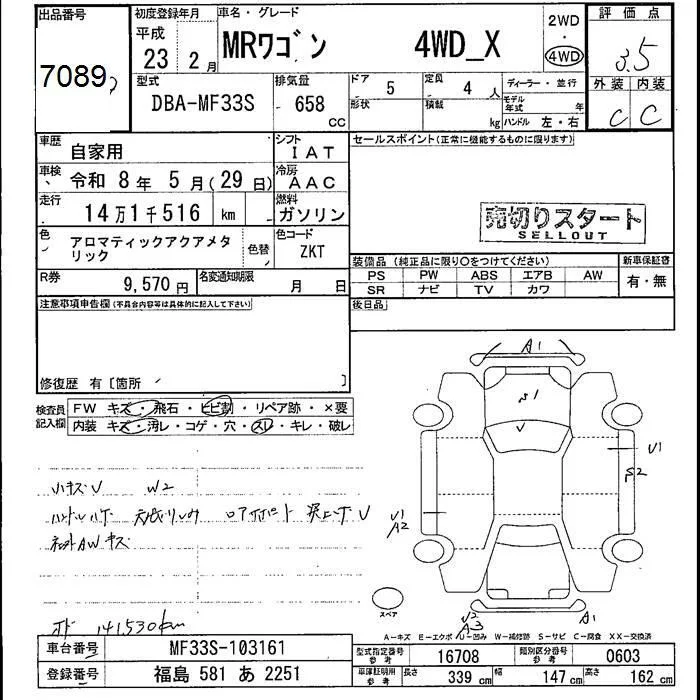 出品番号
7089
初度登録年月
平成
23 2 月
車名・グレード
MRワゴン 4WD_X
2WD
・
4WD
評価点
3.5
外装 内装
C C
型式
DBA-MF33S
排気量
658
cc
ドア 5
形状
定員 4 人
積載 kg
ディーラー・並行
モデル年式 年
ハンドル 左・右
車歴
自家用
シフト
IAT
車検
令和 8 年 5 月(29 日)
冷房
AAC
走行
14万1千516 km
燃料
ガソリン
色
アロマティックアクアメタリック
色替
色コード
ZKT
R券
9,570円
名変通知期限
月 日
セールスポイント(正常に機能するものに限ります)
売切りスタート
SELLOUT
装備品(純正品に限り○をつけてください)
新車保証書
PS PW ABS エアB AW
有・無
SR ナビ TV カワ
後日品
注意事項申告欄(不具合内容等は具体的に記入して下さい)
修復歴 有〔箇所 〕
検査員記入欄
FW キズ・飛石・ヒビ割・リペア跡・×要
内装 キズ・汚レ・コゲ・穴・スレ・キレ・破レ
A1
U1
S2
小キズU W2
U1
A2
AWキズ
U2
A3
A1
スペア
141,530km
A−キズ E−エクボ U−凹み W−補修跡 S−サビ C−腐食 XX−交換済
車台番号
MF33S-103161
登録番号
福島 581 あ 2251
型式指定番号 参考
16708
類別区分番号 参考
0603
車庫証明用 参考
長さ 339 cm 幅 147 cm 高さ 162 cm